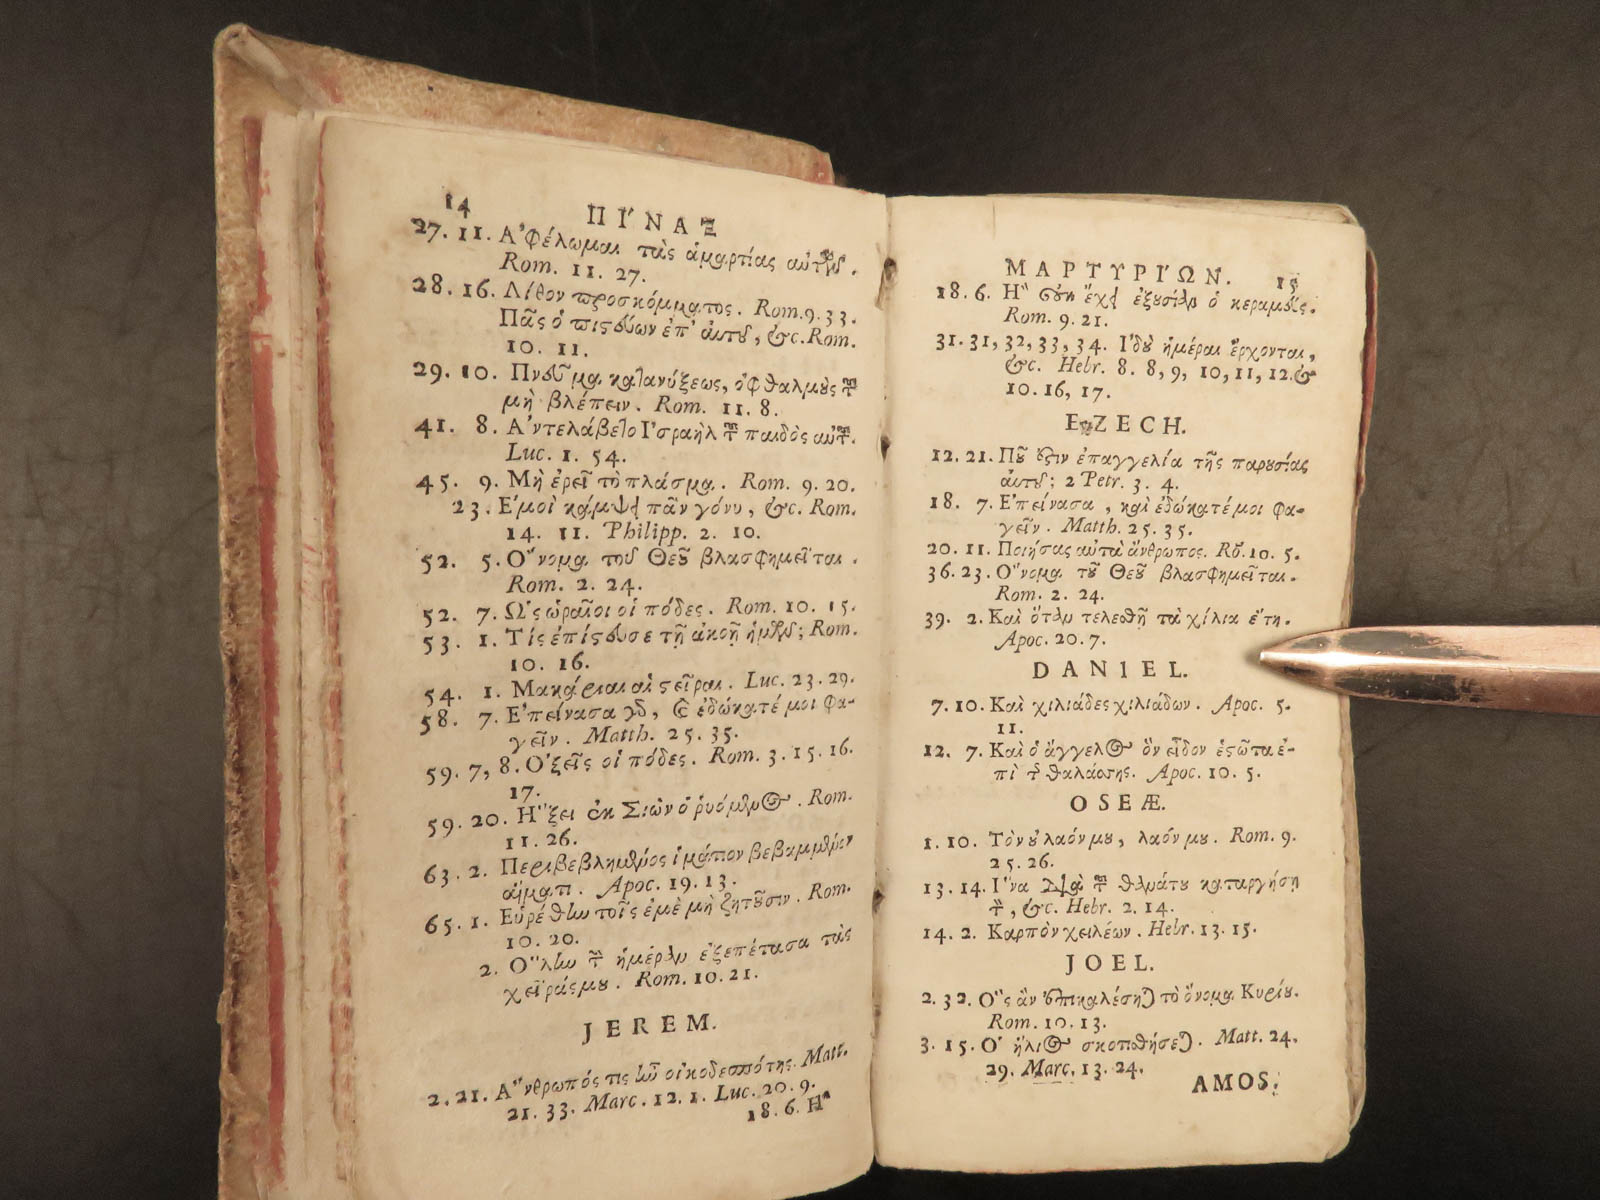 14 ΠΙ´ΝΑΞ
27. 11. Ἀφέλωμαι τὰς ἁμαρτίας αὐτῶν.
Rom. 11. 27.
28. 16. Λίθον προσκόμματος. Rom. 9. 33.
Πᾶς ὁ πιςεύων ἐπ' αὐτῷ, &c. Rom.
10. 11.
29. 10. Πνεῦμα καταινύξεως, ὀφθαλμοὺς τοῦ
μὴ βλέπειν. Rom. 11. 8.
41. 8. Ἀντελάβετο Ἰσραὴλ τοῦ παιδὸς αὐτοῦ.
Luc. 1. 54.
45. 9. Μὴ ἐρεῖ τὸ πλάσμα. Rom. 9. 20.
23. Ἐμοὶ κάμψει πᾶν γόνυ, &c. Rom.
14. 11. Philipp. 2. 10.
52. 5. Ὄνομα τοῦ Θεοῦ βλασφημεῖται.
Rom. 2. 24.
52. 7. Ὡς ὡραῖοι οἱ πόδες. Rom. 10. 15.
53. 1. Τίς ἐπίςευσε τῇ ἀκοῇ ἡμῶν; Rom.
10. 16.
54. 1. Μακάριαι αἱ ςεῖραι. Luc. 23. 29.
58. 7. Ἐπείνασα γὰρ, καὶ ἐδώκατέ μοι φα-
γεῖν. Matth. 25. 35.
59. 7, 8. Ὀξεῖς οἱ πόδες. Rom. 3. 15. 16.
17.
59. 20. Ἥξει ἐκ Σιὼν ὁ ῥυόμενος. Rom.
11. 26.
63. 2. Περιβεβλημένος ἱμάτιον βεβαμμένον
αἵματι. Apoc. 19. 13.
65. 1. Εὑρέθην τοῖς ἐμὲ μὴ ζητοῦσιν. Rom.
10. 20.
2. Ὅλην τὴν ἡμέραν ἐξεπέτασα τὰς
χεῖράς μου. Rom. 10. 21.
JEREM.
2. 21. Ἄνθρωπός τις ἦν οἰκοδεσπότης. Matt.
21. 33. Marc. 12. 1. Luc. 20. 9.
18. 6. Ἢ
ΜΑΡΤΥΡΙ´ΩΝ. 15
18. 6. Ἢ οὐκ ἔχει ἐξουσίαν ὁ κεραμεύς.
Rom. 9. 21.
31. 31, 32, 33, 34. Ἰδοὺ ἡμέραι ἔρχονται,
&c. Hebr. 8. 8, 9, 10, 11, 12. &
10. 16, 17.
EZECH.
12. 21. Ποῦ ἐςιν ἐπαγγελία τῆς παρουσίας
αὐτοῦ; 2 Petr. 3. 4.
18. 7. Ἐπείνασα, καὶ ἐδώκατέ μοι φα-
γεῖν. Matth. 25. 35.
20. 11. Ποιήσας αὐτὰ ἄνθρωπος. Rō. 10. 5.
36. 23. Ὄνομα τοῦ Θεοῦ βλασφημεῖται.
Rom. 2. 24.
39. 2. Καὶ ὅταν τελεσθῇ τὰ χίλια ἔτη.
Apoc. 20. 7.
DANIEL.
7. 10. Καὶ χιλιάδες χιλιάδων. Apoc. 5.
11.
12. 7. Καὶ ὁ ἄγγελος ὃν εἶδον ἑςῶτα ἐ-
πὶ τῆς θαλάσσης. Apoc. 10. 5.
OSEÆ.
1. 10. Τὸν οὐ λαόν μου, λαόν μου. Rom. 9.
25. 26.
13. 14. Ἵνα διὰ τοῦ θανάτου καταργήσῃ
τὸν, &c. Hebr. 2. 14.
14. 2. Καρπὸν χειλέων. Hebr. 13. 15.
JOEL.
2. 32. Ὃς ἂν ἐπικαλέσηται τὸ ὄνομα Κυρίου.
Rom. 10. 13.
3. 15. Ὁ ἥλιος σκοτισθήσεται. Matt. 24.
29. Marc. 13. 24.
AMOS.